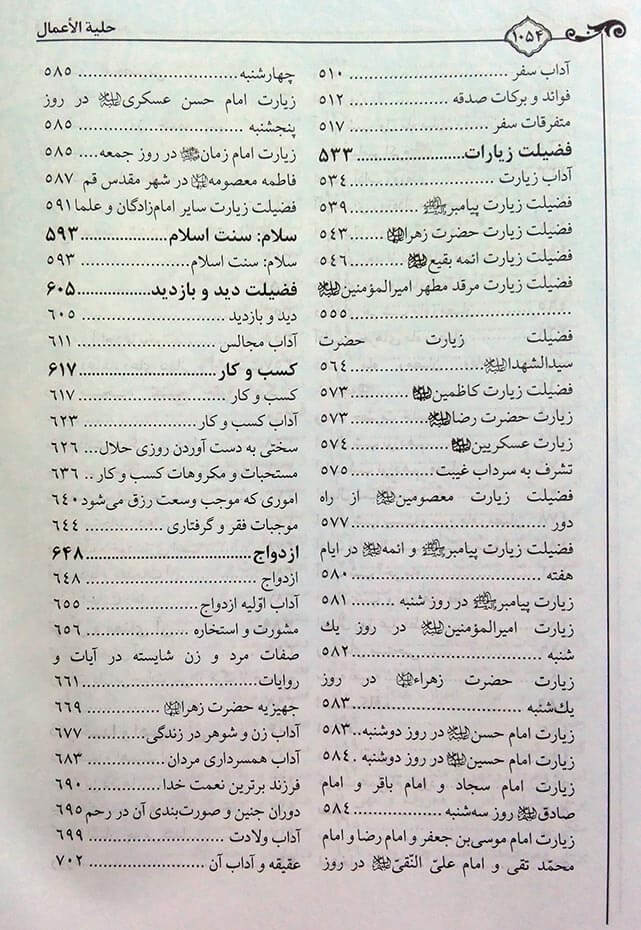 ۱۰۵۴
حلیة الأعمال
آداب سفر ................................ ۵۱۰
فوائد و برکات صدقه .................... ۵۱۲
متفرقات سفر ............................ ۵۱۷
فضیلت زیارات ....................... ۵۳۳
آداب زیارت ............................. ۵۳۴
فضیلت زیارت پیامبر ﷺ .............. ۵۳۹
فضیلت زیارت حضرت زهرا ........ ۵۴۳
فضیلت زیارت ائمه بقیع ........... ۵۴۶
فضیلت زیارت مرقد مطهر امیرالمؤمنین
............................................ ۵۵۵
فضیلت زیارت حضرت
سیدالشهدا ............................ ۵۶۴
فضیلت زیارت کاظمین ............. ۵۷۳
زیارت حضرت رضا ................... ۵۷۳
زیارت عسکریین ..................... ۵۷۴
تشرف به سرداب غیبت ................. ۵۷۵
فضیلت زیارت معصومین از راه
دور ........................................ ۵۷۷
فضیلت زیارت پیامبر ﷺ و ائمه در ایام
هفته ...................................... ۵۸۰
زیارت پیامبر ﷺ در روز شنبه ......... ۵۸۱
زیارت امیرالمؤمنین در روز یك
شنبه ...................................... ۵۸۲
زیارت حضرت زهراء در روز
یك‌شنبه .................................. ۵۸۳
زیارت امام حسن در روز دوشنبه .. ۵۸۳
زیارت امام حسین در روز دوشنبه . ۵۸۴
زیارت امام سجاد و امام باقر و امام
صادق روز سه‌شنبه ................. ۵۸۴
زیارت امام موسی‌بن جعفر و امام رضا و امام
محمّد تقی و امام علیّ النّقیّ در روز
چهارشنبه ............................... ۵۸۵
زیارت امام حسن عسکری در روز
پنجشنبه ................................ ۵۸۵
زیارت امام زمان در روز جمعه .... ۵۸۵
فاطمه معصومه در شهر مقدس قم ۵۸۷
فضیلت زیارت سایر امام‌زادگان و علما ۵۹۱
سلام: سنت اسلام .................. ۵۹۳
سلام: سنت اسلام ..................... ۵۹۳
فضیلت دید و بازدید ................ ۶۰۵
دید و بازدید ............................. ۶۰۵
آداب مجالس ........................... ۶۱۱
کسب و کار ........................... ۶۱۷
کسب و کار ............................. ۶۱۷
آداب کسب و کار ....................... ۶۲۳
سختی به دست آوردن روزی حلال... ۶۲۶
مستحبات و مکروهات کسب و کار .. ۶۳۶
اموری که موجب وسعت رزق می‌شود ۶۴۰
موجبات فقر و گرفتاری ............... ۶۴۴
ازدواج .................................. ۶۴۸
ازدواج .................................... ۶۴۸
آداب اوّلیه ازدواج ...................... ۶۵۵
مشورت و استخاره ..................... ۶۵۶
صفات مرد و زن شایسته در آیات و
روایات ................................... ۶۶۱
جهیزیه حضرت زهرا ................ ۶۶۹
آداب زن و شوهر در زندگی ........... ۶۷۷
آداب همسرداری مردان ............... ۶۸۳
فرزند برترین نعمت خدا .............. ۶۹۰
دوران جنین و صورت‌بندی آن در رحم ۶۹۵
آداب ولادت ............................. ۶۹۹
عقیقه و آداب آن ....................... ۷۰۲